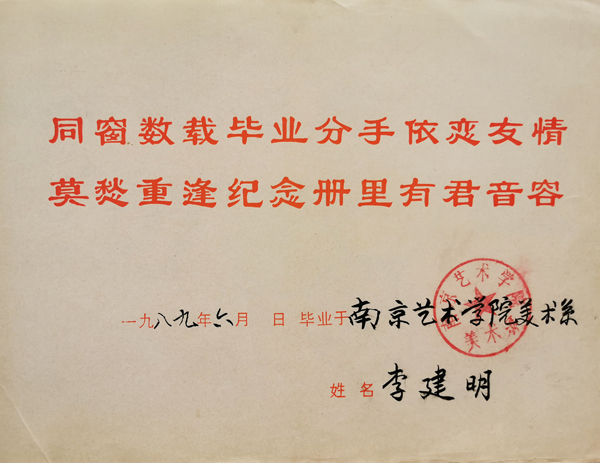 同窗数载毕业分手依恋友情
莫愁重逢纪念册里有君音容
南京艺术学院
美术系
一九八九年六月 日 毕业于南京艺术学院美术系
姓名 李建明